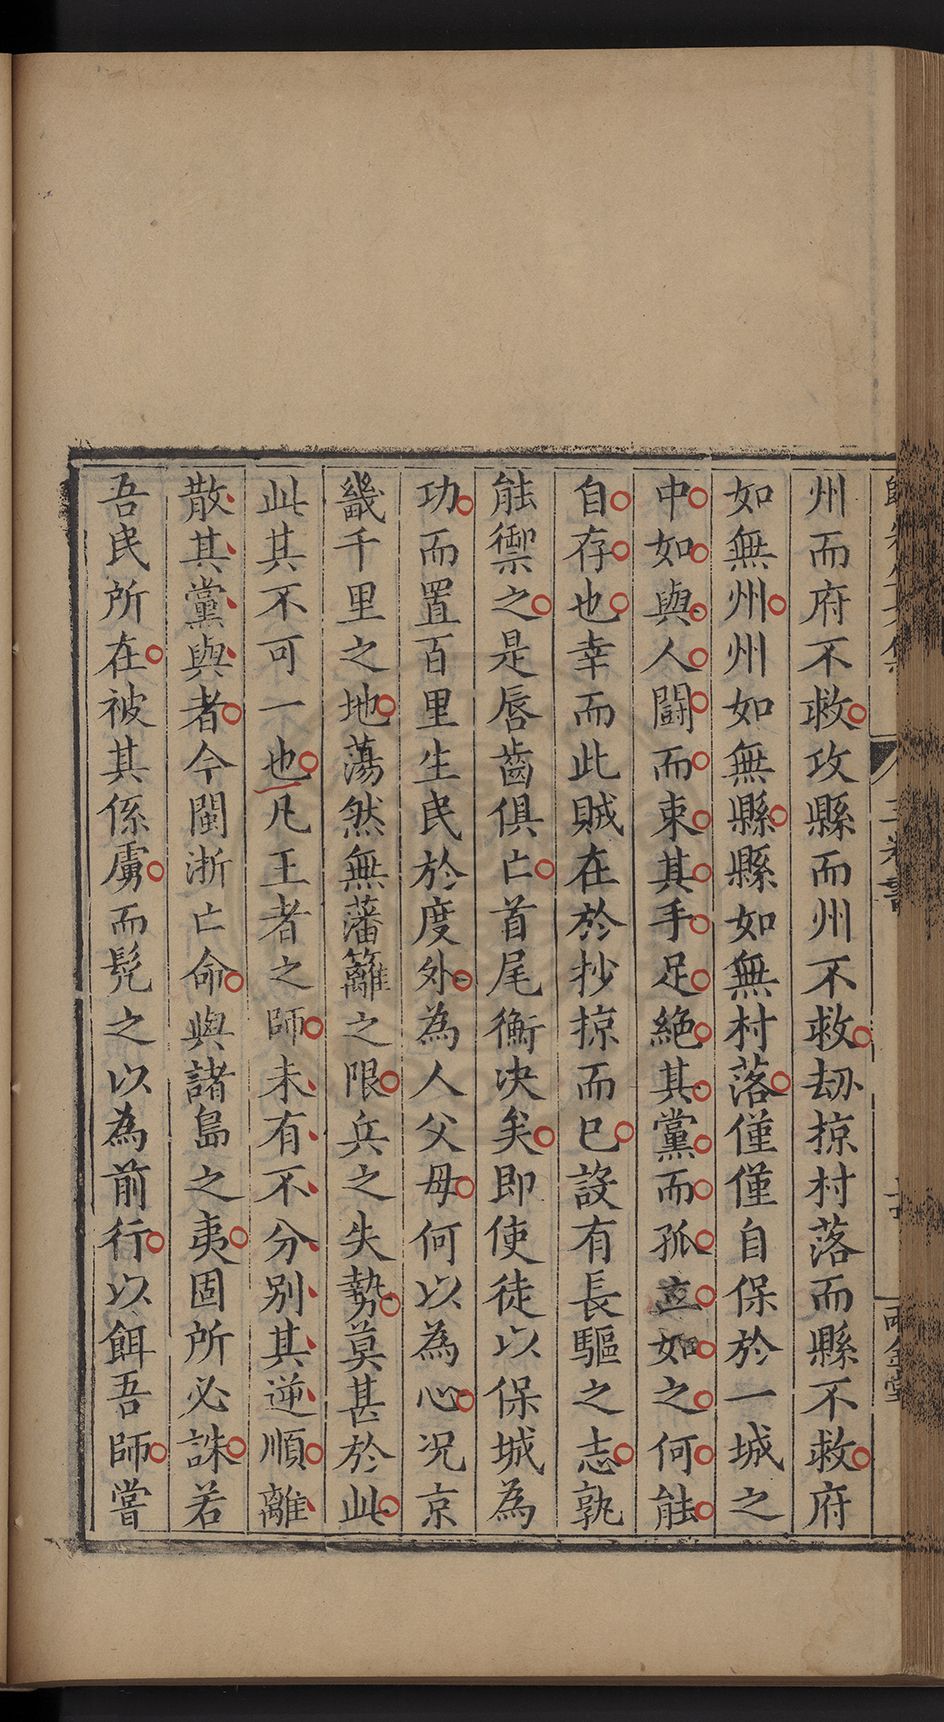 州而府不救攻縣而州不救刼掠村落而縣不救府
如無州州如無縣縣如無村落僅僅自保於一城之
中如與人鬪而束其手足絶其黨而孤立如之何能
自存也幸而此賊在於抄掠而已設有長驅之志孰
能禦之是唇齒俱亡首尾衡决矣即使徒以保城為
功而置百里生民於度外為人父母何以為心况京
畿千里之地蕩然無藩籬之限兵之失勢莫甚於此
此其不可一也凡王者之師未有不分别其逆順離
散其黨與者今閩浙亡命與諸島之夷固所必誅若
吾民所在被其係虜而髡之以為前行以餌吾師嘗